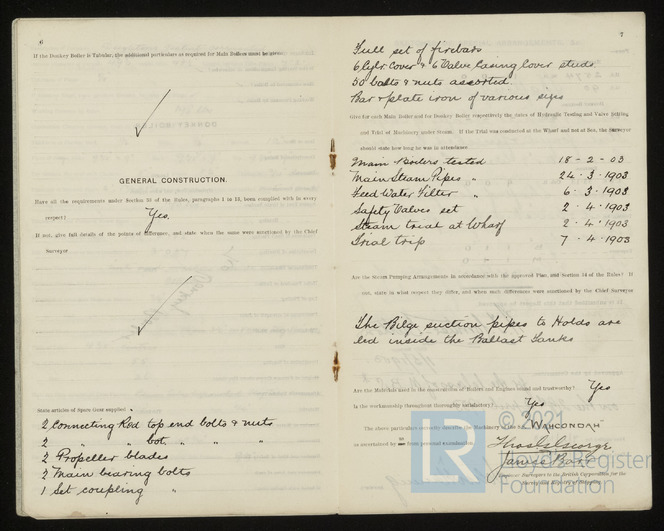 6
If the Donkey Boiler is Tubular, the additional particulars as required for Main Boilers must be given.
GENERAL CONSTRUCTION.
Have all the requirements under Section 30 of the Rules, paragraphs 1 to 13, been complied with in every
respect? Yes.
If not, give full details of the points of difference, and state when the same were sanctioned by the Chief
Surveyor
State articles of Spare Gear supplied
2 Connecting Rod top end bolts & nuts
2 " " bot. " " "
2 Propeller blades
2 Main bearing bolts
1 Set coupling "
7
Full set of firebars
6 Cylr. Cover & 6 Valve Casing Cover studs
50 bolts & nuts assorted.
Bar & plate iron of various sizes
Give for each Main Boiler and for Donkey Boiler respectively the dates of Hydraulic Testing and Valve Setting
and Trial of Machinery under steam. If the Trial was conducted at the Wharf and not at Sea, the Surveyor
should state how he was in attendance.
Main Boilers tested 18 - 2 - 03
Main Steam Pipes " 24 . 3 . 1903
Feed Water Filter " 6 . 3 . 1903
Safety Valves set 2 . 4 . 1903
Steam trial at Wharf 2 . 4 . 1903
Trial trip 7 . 4 . 1903
Are the Steam Pumping Arrangements in accordance with the approved Plan and Section 34 of the Rules? If
not, state in what respect they differ, and when such differences were sanctioned by the Chief Surveyor
The Bilge suction pipes to Holds are
led inside the Ballast Tanks
Are the Materials used in the construction of Boilers and Engines sound and trustworthy? Yes
Is the workmanship throughout thoroughly satisfactory? Yes
The above particulars correctly describe the Machinery of the S.S. WAHCONDAH
as ascertained by from personal examination.
James Barr
Surveyors to the British Corporation for the
Survey and Registry of Shipping.
© 2021
LR
Lloyd's Register
Foundation